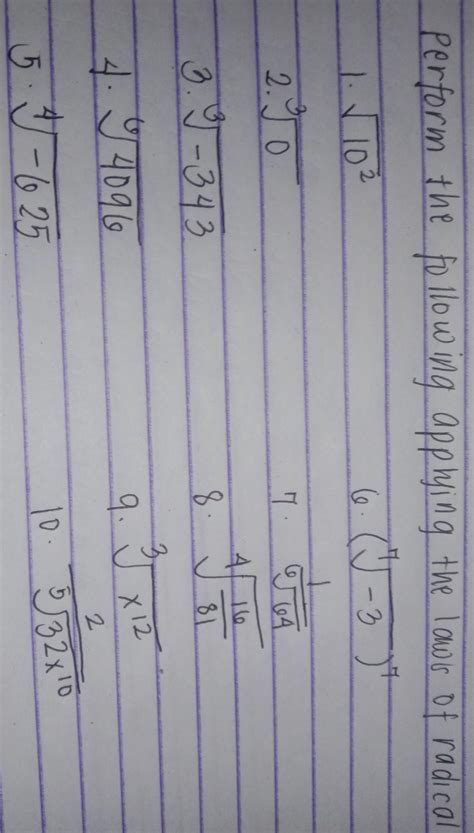 perform the following applying the laws of radical
1. √10²
2. ∛0
3. ∛-343
4. ⁶√4096
5. ⁴√-625
6. (⁷√-3)⁷
7. 1/⁶√64
8. ⁴√16/81
9. ³√x12
10. 2/⁵√32x10